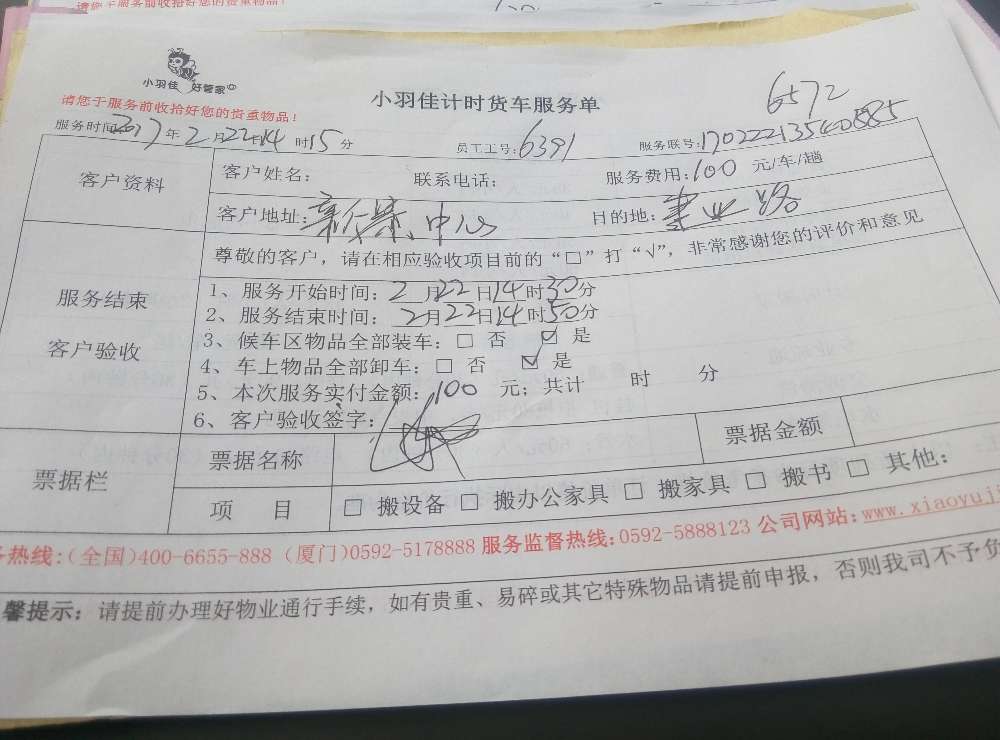 请您于服务前收拾好您的贵重物品!
小羽佳 好管家
小羽佳计时货车服务单
6572
请您于服务前收拾好您的贵重物品!
服务时间2017年2月22日14时15分 员工工号:6391 服务联号:17022213540885
客户资料 客户姓名: 联系电话: 服务费用:100元/车/趟
客户地址: 中心 目的地: 业路
尊敬的客户，请在相应验收项目前的“□”打“√”，非常感谢您的评价和意见
服务结束
客户验收
1、服务开始时间:2月22日14时30分
2、服务结束时间:2月22日14时50分
3、候车区物品全部装车:□ 否 ☑ 是
4、车上物品全部卸车:□ 否 ☑ 是
5、本次服务实付金额:100元;共计 时 分
6、客户验收签字:
票据栏 票据名称 票据金额
项 目 □ 搬设备 □ 搬办公家具 □ 搬家具 □ 搬书 □ 其他:
热线:(全国)400-6655-888 (厦门)0592-5178888 服务监督热线:0592-5888123 公司网站:www.xiaoyuji
馨提示: 请提前办理好物业通行手续，如有贵重、易碎或其它特殊物品请提前申报，否则我司不予负